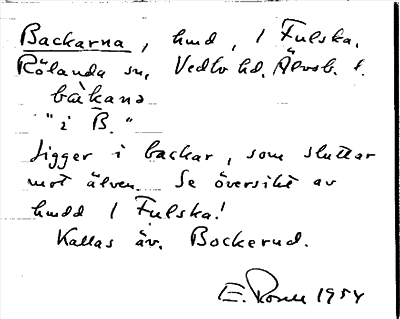 Backarna, hmd, 1 Fulska.
Rölanda sn, Vedbo hd, Älvsb. l.
bàkana
"i B."
Ligger i backar, som sluttar
mot älven. Se översikt av
hmdd 1 Fulska!
Kallas äv. Bockerud.
E. 1954